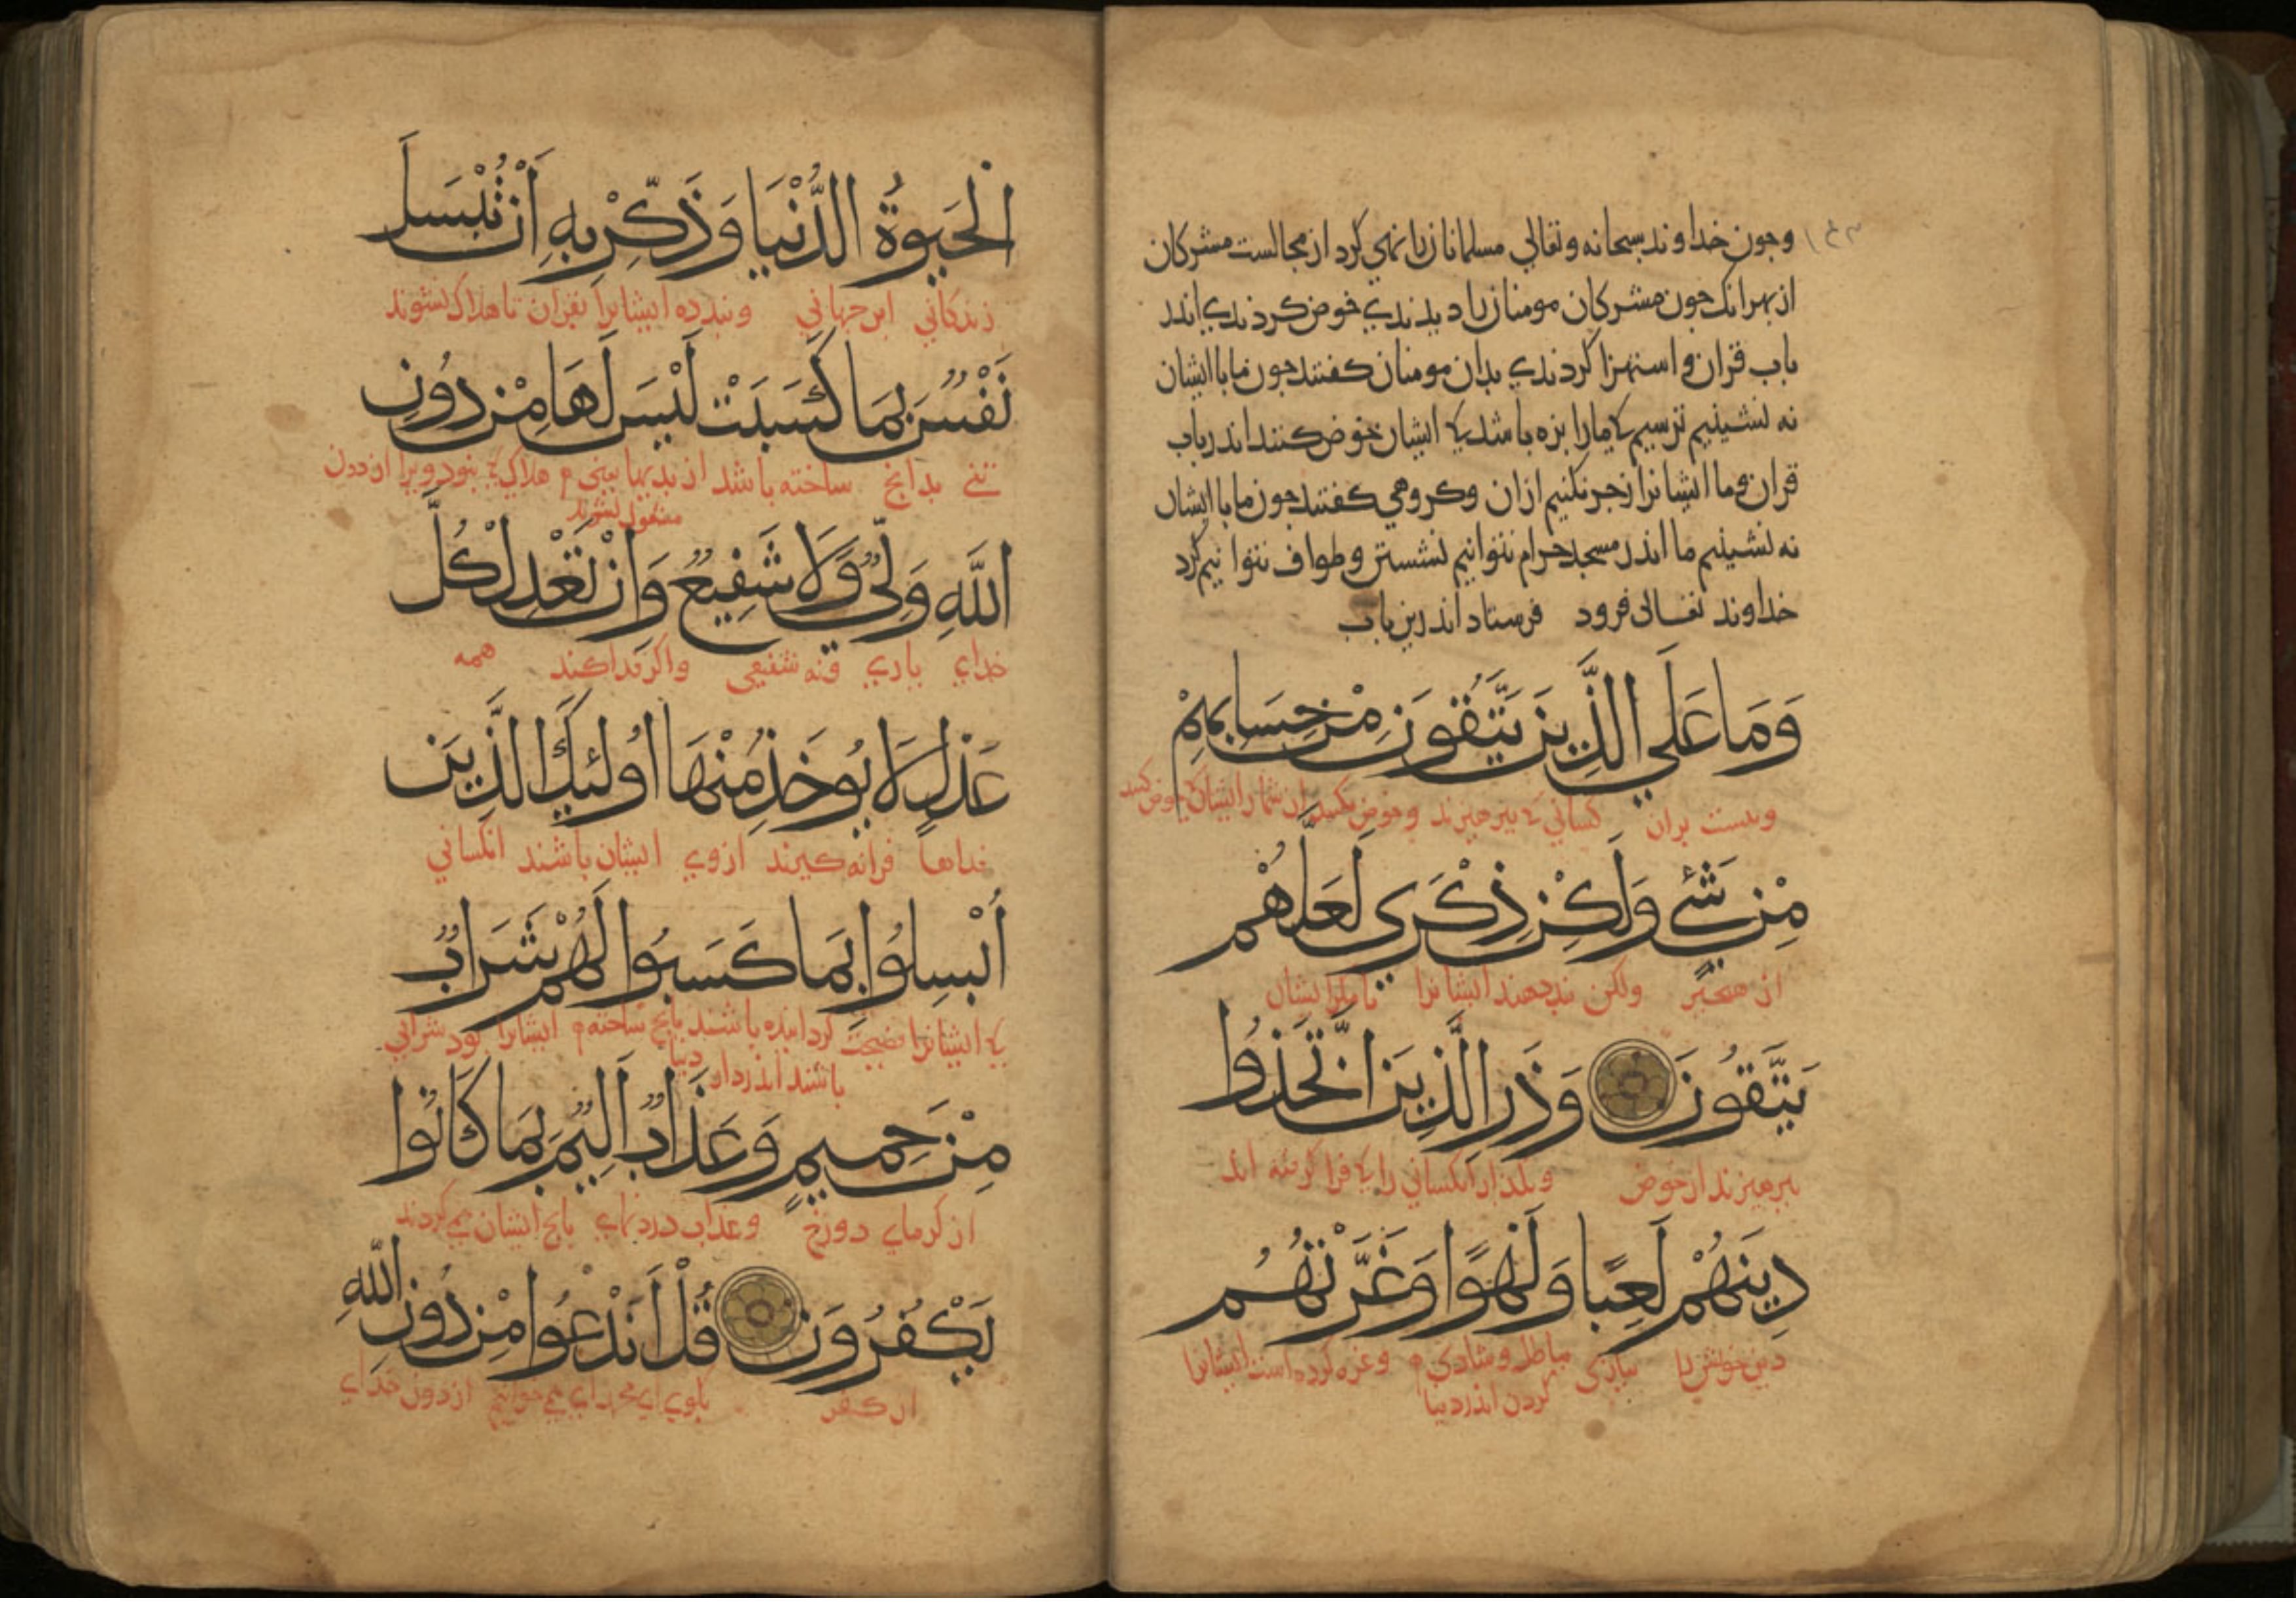 وجون خداوند سبحانه وتعالي مسلمانانرا نهي كرد از مجالست مشركان
از بهر انك جون مشركان مومنانرا ديدندي خوض كردندي اندر
باب قران و استهزا كردندي بدان مومنان كفتند جون ما با ايشان
نه نشينيم ترسيم كه مارا بزه باشد كه ايشان خوض كنند اندر باب
قران وما ايشانرا زجر نكنيم ازان وكروهي كفتند جون ما با ايشان
نه نشينيم ما اندر مسجد حرام نتوانيم نشستن وطواف نتوانيم كرد
خداوند تعالى فرود فرستاد اندرين باب
وَمَا عَلَي الَّذِينَ يَتَّقُونَ مِنْ حِسَابِهِمْ
ونيست بران كساني كه بپرهيزند
مِنْ شَيْءٍ وَلَكِنْ ذِكْرَي لَعَلَّهُمْ
از هيچيز ولكن پند دهند ايشانرا تا مكر ايشان
يَتَّقُونَ وَذَرِ الَّذِينَ اتَّخَذُوا
بپرهيزند از خوض وبكذار انكساني را كه فرا كرفته اند
دِينَهُمْ لَعِبًا وَلَهْوًا وَغَرَّتْهُمُ
دين خويش را ببازي باطل وشادي و غره كرده است ايشانرا
كردن اندر دنيا
الْحَيَوةُ الدُّنْيَا وَذَكِّرْ بِهِ أَنْ تُبْسَلَ
زندكاني اين جهاني وپند ده ايشانرا بقران تا هلاك نشوند
نَفْسٌ بِمَا كَسَبَتْ لَيْسَ لَهَا مِنْ دُونِ
تني بدانچ ساخته باشد از بديها يعني هلاك نبود ويرا از دون
اللَّهِ وَلِيٌّ وَلَا شَفِيعٌ وَإِنْ تَعْدِلْ كُلَّ
خداي ياري ونه شفيعي واكر فدا كند همه
عَدْلٍ لَا يُوخَذْ مِنْهَا أُولَئِكَ الَّذِينَ
فداها فرا نه كيرند ازوي ايشان باشند انكساني
أُبْسِلُوا بِمَا كَسَبُوا لَهُمْ شَرَابٌ
كه ايشانرا فضيحت كردانيده باشند بانچ ساخته ايشانرا بود شرابي
باشند اندر دار دنيا
مِنْ حَمِيمٍ وَعَذَابٌ أَلِيمٌ بِمَا كَانُوا
از كرماي دوزخ وعذاب دردناي بانچ ايشان مي كردند
يَكْفُرُونَ قُلْ أَنَدْعُوا مِنْ دُونِ اللَّهِ
از كفر بكوي اي محمد اي مي خوانيم از دون خداي